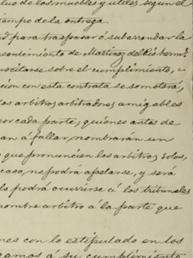 los muebles y utiles, segun el
tiempo de la entrega.
para traspasar ó subarrendar la
consentimiento de Martinez del Rio herm
suscitarse sobre el cumplimiento, in
cion con esta contrata se someterá
los arbitros arbitradores amigables
por cada parte; quienes antes de
an á fallar, nombrarán un
que pronuncien los arbitros. Solos,
caso, no podrá apelarse, y será
lo podrá ocurrirse á los tribunales
nombre arbitro á la parte que
nes con lo estipulado en los
gamos á su cumplimiento